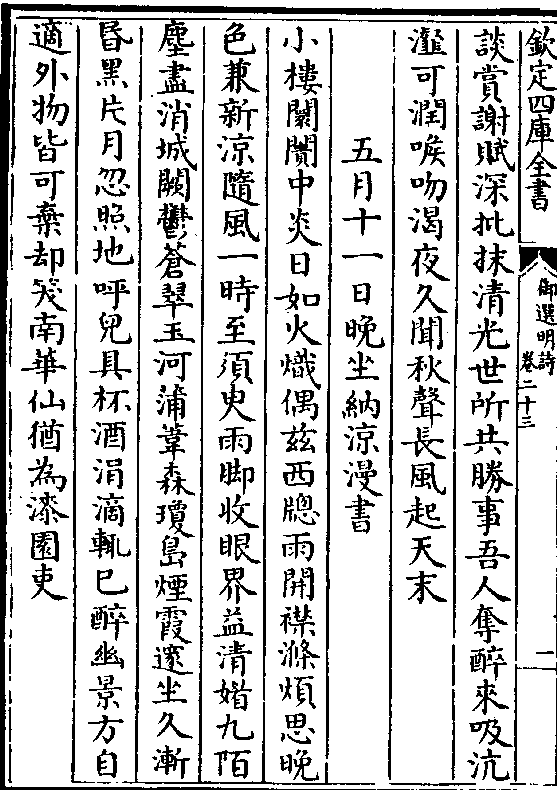 欽定四庫全書
御選明詩
卷二十三
一
談賞謝賦深批抹清光世所共勝事吾人奪醉來吸沆
瀣可潤喉吻渴夜久聞秋聲長風起天末
五月十一日晚坐納涼漫書
小樓闤闠中炎日如火熾偶兹西牕雨開襟滌煩思晚
色兼新涼隨風一時至須臾雨脚收眼界益清媚九陌
塵盡消城闕鬱蒼翠玉河蒲葦森瓊島煙霞邃坐久漸
昏黑片月忽照地呼兒具杯酒涓滴輒已醉幽景方自
適外物皆可棄却笑南華仙猶為漆園吏